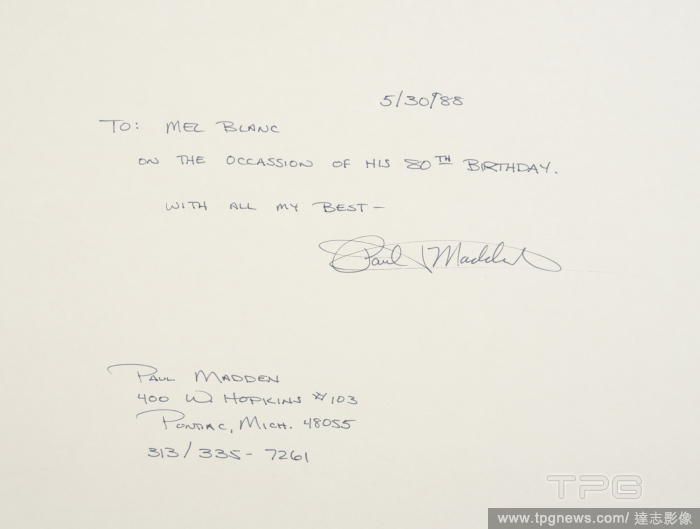 5/30/88
TO: MEL BLANC
ON THE OCCASSION OF HIS 80TH BIRTHDAY.
WITH ALL MY BEST —
Paul J Madden
PAUL MADDEN
400 W HOPKINS #103
PONTIAC, MICH. 48055
313/335-7261
TPG
www.tpgnews.com/ 達志影像